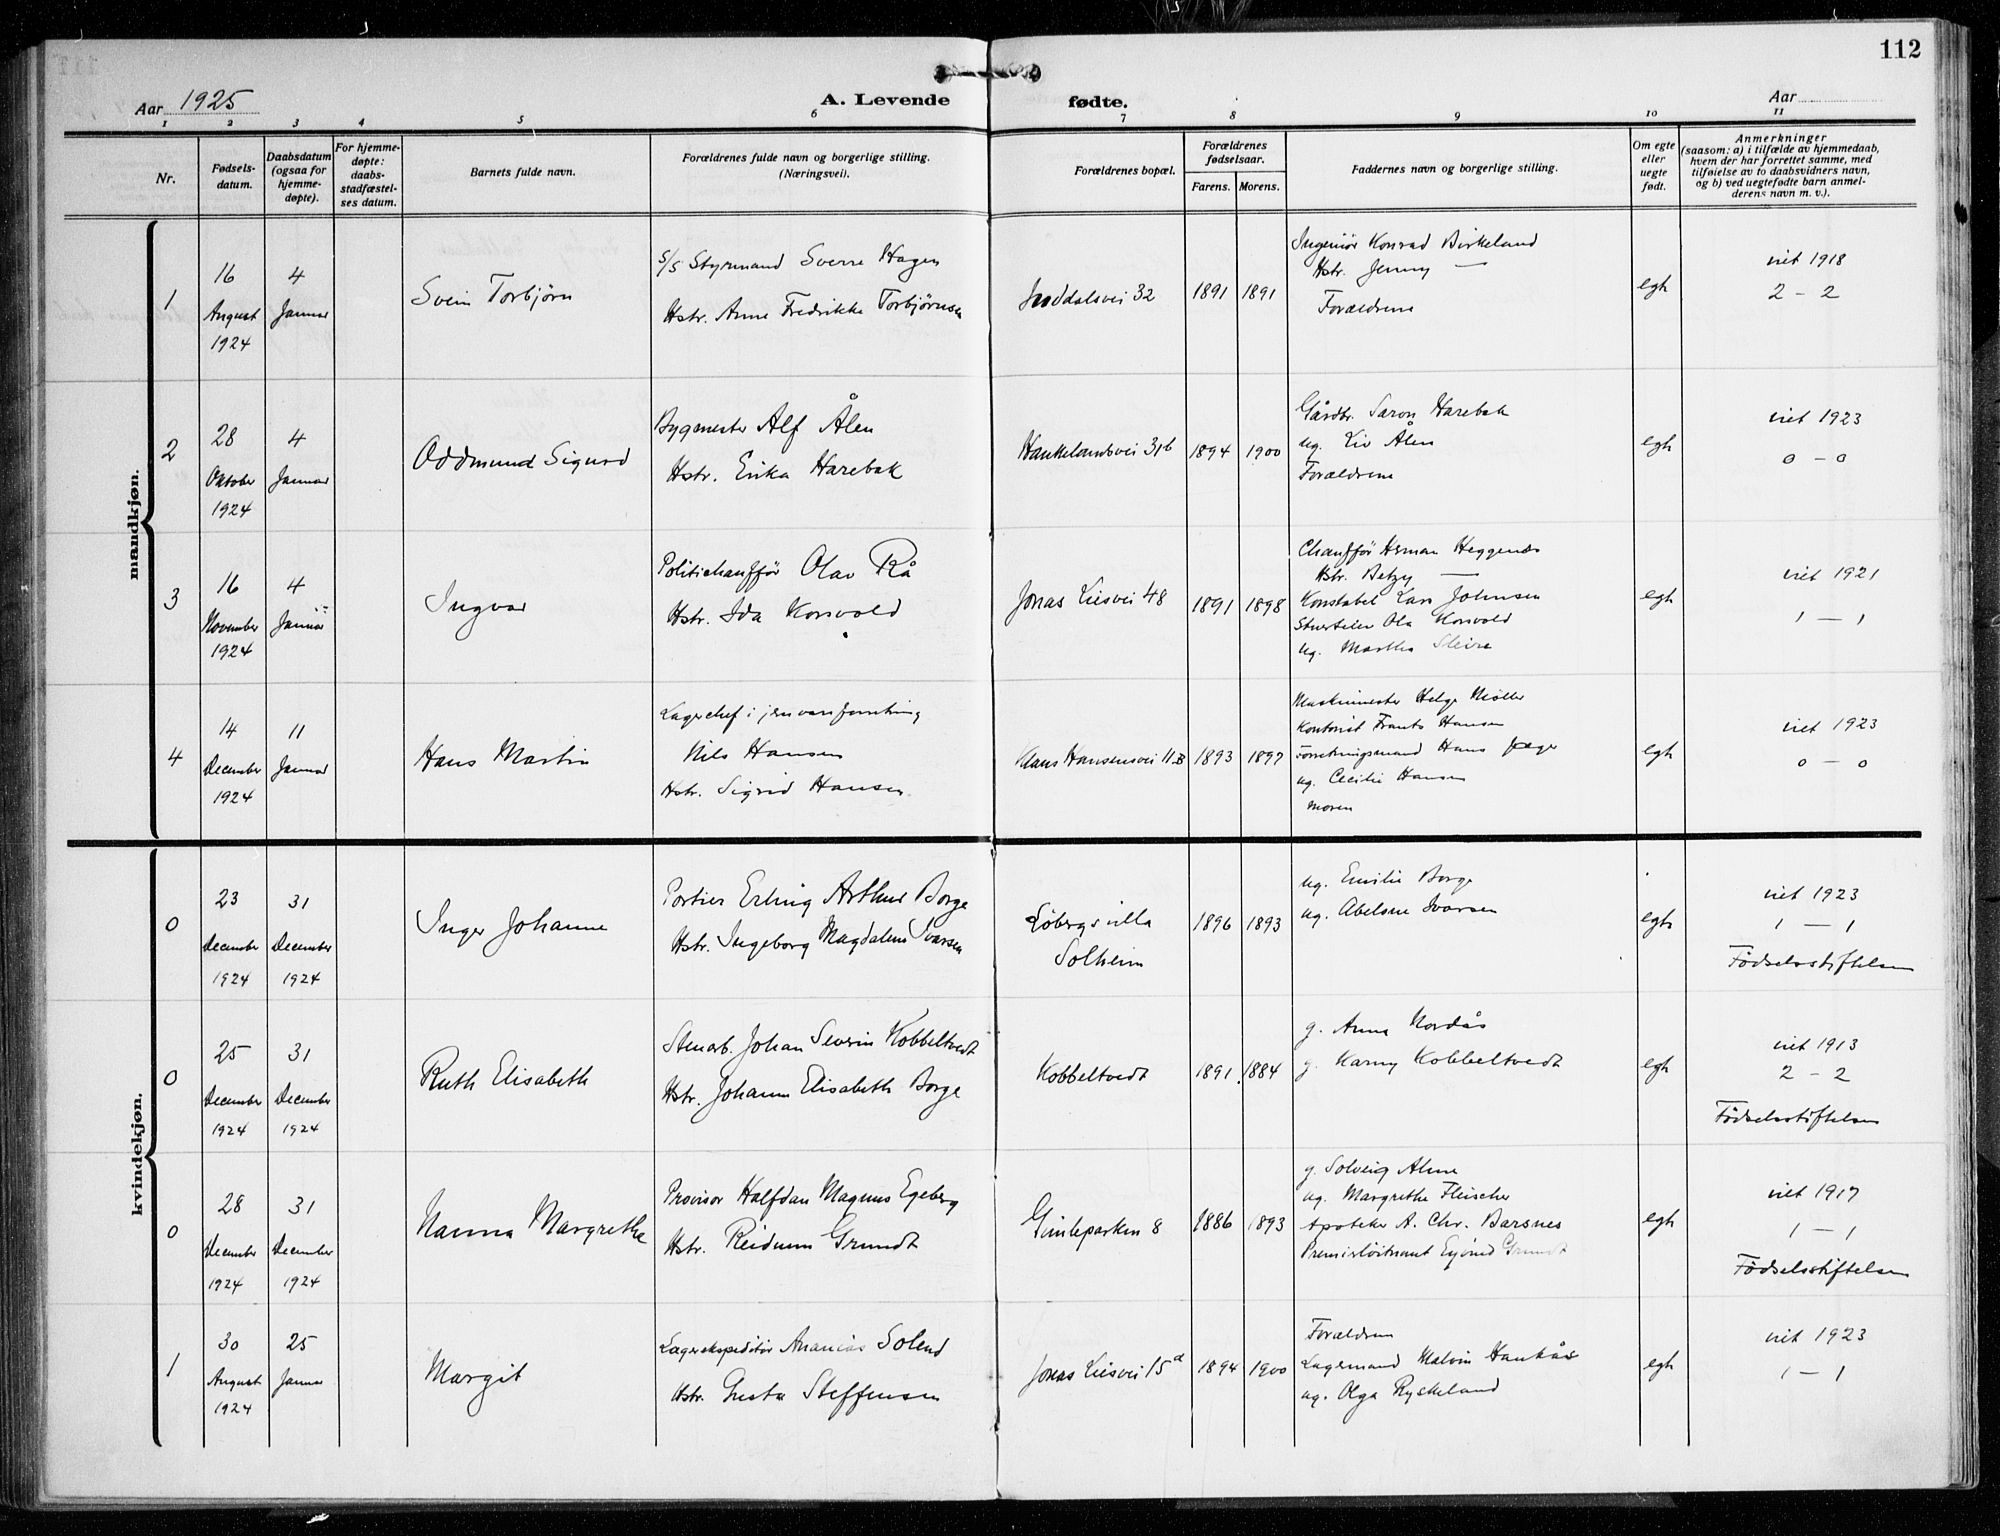 112
Aar 1925
A. Levende fødte.
Aar
1 2 3 4 5 6 7 8 9 10 11
Nr.
Fødsels-
datum.
Daabsdatum
(ogsaa for
hjemme-
døpte).
For hjemme-
døpte:
daabs-
stadfæstel-
ses datum.
Barnets fulde navn.
Forældrenes fulde navn og borgerlige stilling.
(Næringsvei).
Forældrenes bopæl.
Forældrenes
fødselsaar.
Farens. Morens.
Faddernes navn og borgerlige stilling.
Om egte
eller
uegte
født.
Anmerkninger
(saasom: a) i tilfælde av hjemmedaab,
hvem der har forrettet samme, med
tilføielse av to daabsvidners navn,
og b) ved uegtefødte barn anmel-
derens navn m. v.).
mandkjøn.
1
16
August
1924
4
Januar
Svein Torbjørn
S/S Styrmand Sverre Hagen
Hstr. Anna Fredrikke Torbjørnsen
Inddalsvei 32
1891 1891
Ingeniør Konrad Birkeland
Hstr. Jenny —
Forældrene
egte
viet 1918
2 – 2
2
28
Oktober
1924
4
Januar
Oddmund Sigurd
Bygmester Alf Ålen
Hstr. Erika Harebak
Haukelandsvei 31b
1894 1900
Gårdbr. Saron Harebak
ug. Liv Ålen
Forældrene
egte
viet 1923
0 – 0
3
16
November
1924
4
Januar
Ingvar
Politichauffør Olav Rå
Hstr. Ida Korsvold
Jonas Liesvei 48
1891 1898
Chauffør Herman Heggenes
Hstr. Betzy —
Konstabel Lars Johnsen
Ola Korsvold
ug. Martha
egte
viet 1921
1 – 1
4
14
December
1924
11
Januar
Hans Martin
Lagerchef i jernvareforretning
Nils Hansen
Hstr. Sigrid Hansen
Klaus Hansensvei 11B
1893 1897
Maskinmester Helge Møller
Kontorist Frants Hansen
Forretningsmand Hans Jæger
ug. Cecilie Hansen
Moren
egte
viet 1923
0 – 0
kvindekjøn.
0
23
December
1924
31
December
1924
Inger Johanne
Portier Erling Arthur Borge
Hstr. Ingeborg Magdalene Ivarsen
Løbergsvilla
Solheim
1896 1893
ug. Emilie Borge
ug. Abelone Ivarsen
egte
viet 1923
1 – 1
Fødselsstiftelsen
0
25
December
1924
31
December
1924
Ruth Elisabeth
Stenarb. Johan Severin Kobbeltvedt
Hstr. Johanne Elisabeth Borge
Kobbeltvedt
1891 1884
g. Anna Nordås
g. Karny Kobbeltvedt
egte
viet 1913
2 – 2
Fødselsstiftelsen
0
28
December
1924
31
December
1924
Nanna Margrethe
Provisor Halfdan Magnus Egeberg
Hstr. Reidunn Grundt
Gimleparken 8
1886 1893
g. Solveig Alme
ug. Margrethe Fleischer
Apoteker A. Chr. Barsnes
Premierløitnant Eyvind Grundt
egte
viet 1917
1 – 1
Fødselsstiftelsen
1
30
August
1924
25
Januar
Margit
Lagerekspeditør Ananias Solend
Hstr. Gusta Steffensen
Jonas Liesvei 15a
1894 1900
Forældrene
Lagermand Malvin Haukås
ug. Olga Ryskeland
egte
viet 1923
1 – 1